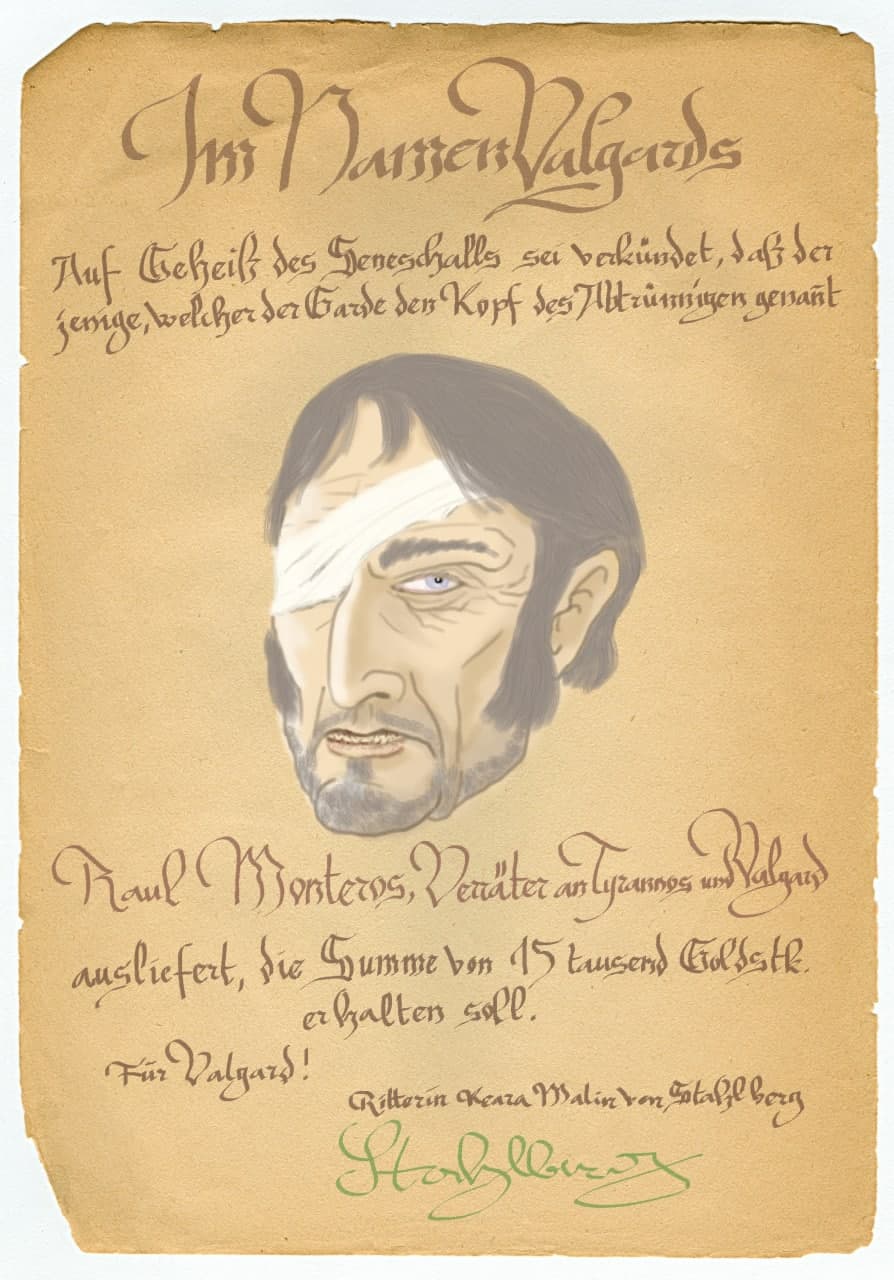 Im Namen Valgards
Auf Geheiß des Seneschalls sei verkündet, daß der
jenige, welcher der Garde den Kopf des Abtrünnigen genañt
Raul Monteros, Verräter an Tyrannos und Valgard
ausliefert, die Summe von 15 tausend Goldstk.
erhalten soll.
Für Valgard!
Ritterin Keara Malin von Stahlberg
Stahlberg